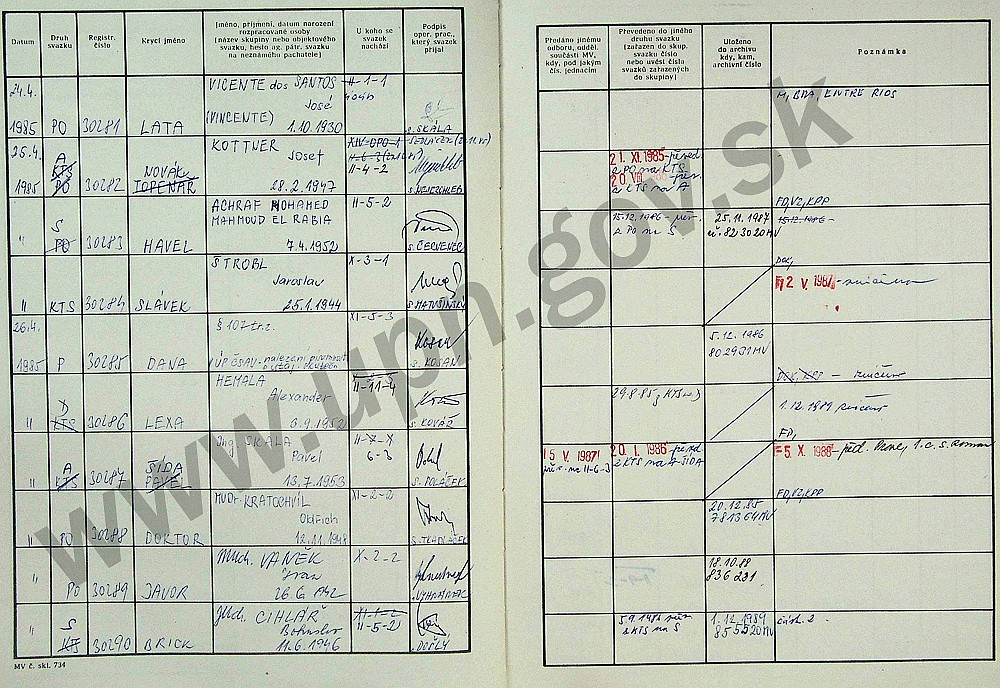 Datum
Druh svazku
Registr. číslo
Krycí jméno
Jméno, příjmení, datum narození
rozpracované osoby
(název skupiny nebo objektového
svazku, heslo ag. pátr. svazku
na neznámého pachatele)
U koho se
svazek
nachází
Podpis
oper. prac.,
který svazek
přijal
Předáno jinému
odboru, odděl.
součásti MV,
kdy, pod jakým
čís. jednacím
Převedeno do jiného
druhu svazku
(zařazen do skup.
svazku číslo
nebo uvést čísla
svazků zařazených
do skupiny)
Uloženo
do archivu
kdy, kam,
archivní číslo
Poznámka
24.4.
1985 PO 30281 LATA
VICENTE dos SANTOS
José
(VINCENTE)
1.10.1930
II-1-1
s. SKÁLA
M, BRA ENTRE RIOS
25.4.
1985
A
KTS
PO
30282
NOVÁK
TOPENÁŘ
KOTTNER
Josef
28.2.1947
XIV-OPO-1
II-4-2
21. XI. 1985 - převed
z PO na KTS
20. VIII.
z KTS na A
FD, VZ, KPP
" S
PO
30283 HAVEL
ACHRAF MOHAMED
MAHMOUD EL RABIA
7.4.1952
II-5-2
s. ČERVENEC
15.12.1986 - přev.
z PO na S
25.11.1987
č. 823020MV
15.12.1986 -
" KTS 30284 SLÁVEK
ŠTROBL
Jaroslav
25.1.1944
X-3-1
s. MATUŠINSKÝ
2 V. 1987 - zničeno
26.4.
1985 P 30285 DANA
§ 107 tr.z.
ÚP ČSAV - nalezení
XI-5-3
s. KOSAN
5.12.1986
802931MV
" KTS 30286 LEXA
HEMALA
Alexander
6.9.1952
II-11-4
s. KOVÁŘ
29.8.85
zničeno
1.12.1989 zničeno
FD,
" A
KTS
30287
ŠÍDA
PAVEL
Ing. SKALA
Pavel
13.7.1953
II-7-X
6-3
s. POLÁČEK
15 V. 1987
na II-6-3
20. I. 1986 - převed
z KTS na A-ŠÍDA
-5. X. 1988
FD, VZ, KPP
" PO 30288 DOKTOR
MUDr. KRATOCHVÍL
Oldřich
12.11.1948
XI-2-2
s. TKADLEČEK
20.12.85
781364MV
" PO 30289 JAVOR
VANĚK
Ivan
26.6.1942
X-2-2
18.10.88
836231
" S
KTS
30290 BRICK
CIHLÁŘ
Bohuslav
11.6.1946
XI-1-2
II-5-2
s. DOŠLÝ
z KTS na S
1.12.1989
855520MV
část 2.
MV č. skl. 734
www.upn.gov.sk